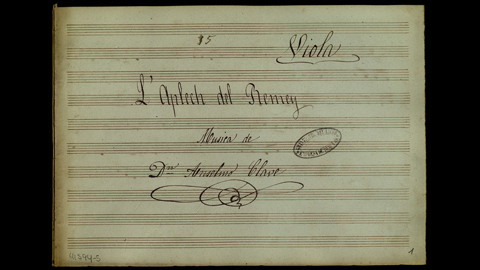 85
Viola
L'Aplech del Remey
Musica de
Dn Anselmo Clave
1